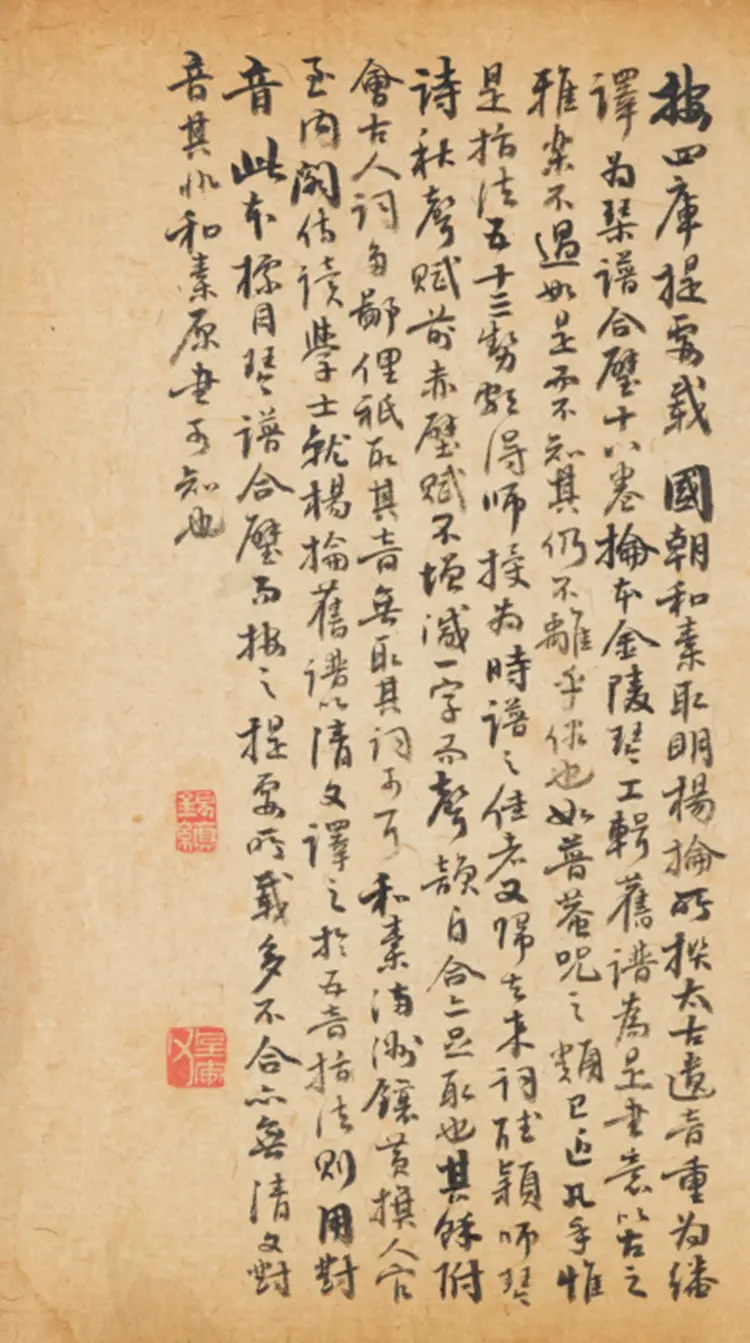 按四庫提要載 國朝和素取明楊掄所撰太古遺音重為繙
譯為琴譜合璧十八卷掄本金陵琴工輯舊譜為是書意以古之
雅樂不過如是而不知其仍不離乎俗也如普菴呪之類已近凡手惟
是指法五十三勢頗得師授為時譜之佳者又歸去來詞聽穎師琴
詩秋聲賦前赤壁賦不增減一字而聲韻自合亦足取也其餘附
會古人詞多鄙俚秖取其音無取其詞可耳 和素滿洲鑲黃旗人官
至內閣侍讀學士就楊掄舊譜以清文譯之於五音指法則用對
音 此本標目琴譜合璧而按之提要所載多不合亦無清文對
音其非和素原書可知也